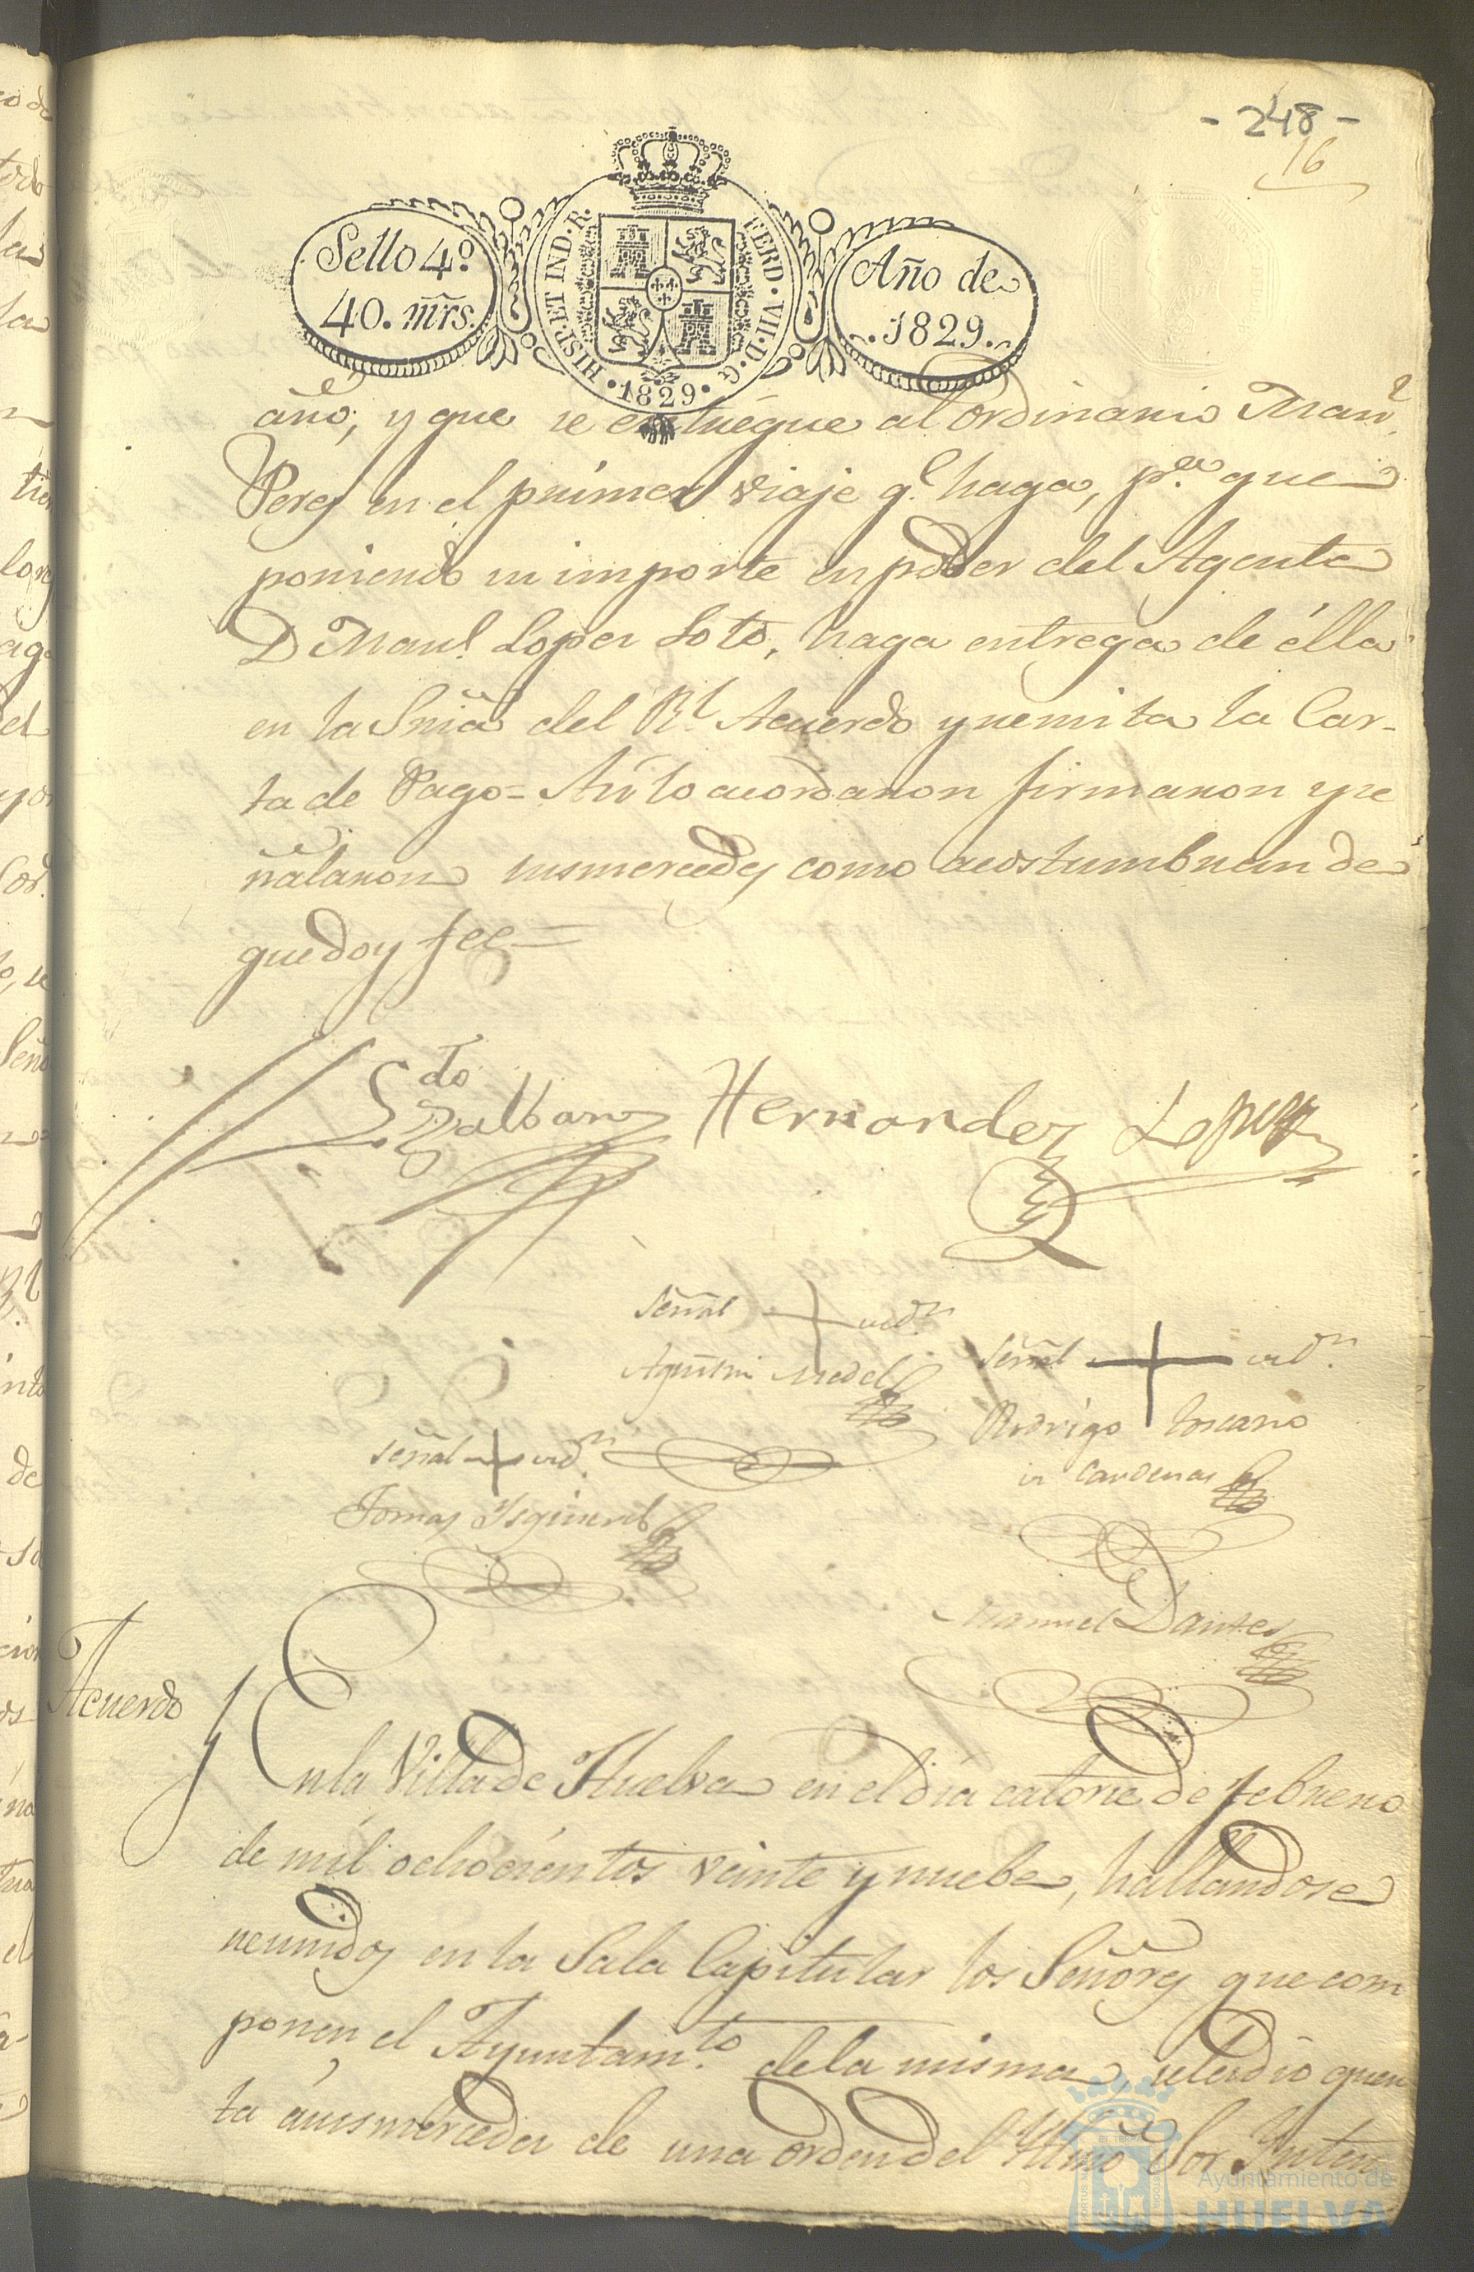 - 248 -
16
Sello 4º
40. mrs.
HISP. ET IND. R.
FERD. VII. D. G.
1829
Año de
1829.
año; y que se entregue al ordinario Manl.
Perez en el primer viaje q.e haga, p.a que
poniendo su importe en poder del Agente
D Manl. Lopez Soto, haga entrega de élla
en la Sriã del Rl. Acuerdo y remita la Car-
ta de Pago = Asi lo acordaron firmaron y se
ñalaron susmercedes como acostumbran de
que doy fee =
Ldo Galban Hernandez Lopez
Señal + del Sr.
Agustin Medel
Señal + del Sr.
Rodrigo Toscano
Cardenas
Señal + del Sr.
Tomas Isquierdo
Manuel Dantes
Acuerdo
En la Villa de Huelva en el dia catorce de febrero
de mil ochocientos veinte y nuebe, hallandose
reunidos en la Sala Capitular los Señores que com
ponen el Ayuntam.to de la misma, seledio quen
ta ásusmercedes de una orden del Ilmo Sor Inten
Ayuntamiento de
HUELVA